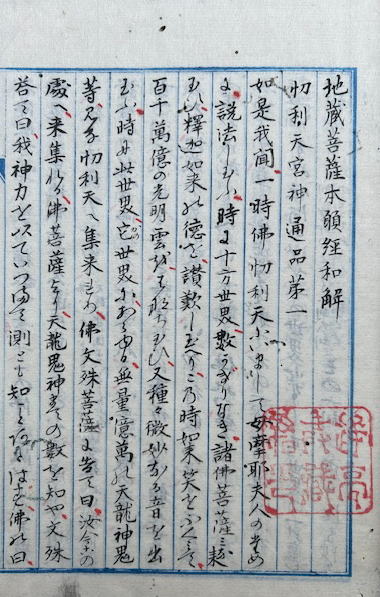 地蔵菩薩本願經和解
忉利天宮神通品第一
如是我聞一時佛忉利天にいまして母摩耶夫人のため
に説法したまふ時に十方世界數かぎりなき諸佛菩薩
釋迦如来の徳を讃歎したまへりこの時如来笑をふくみて
百千萬億の光明雲を放ちたまひ又種々微妙なる音を出
たまふ時に此世界他世界にあらゆる無量億萬の天龍神鬼
等忉利天へ集来る佛文殊菩薩に告て曰汝今この
處へ来集れる佛菩薩より天龍鬼神までの數を知や文殊
答て曰我神力を以て測とも知こと佛の曰